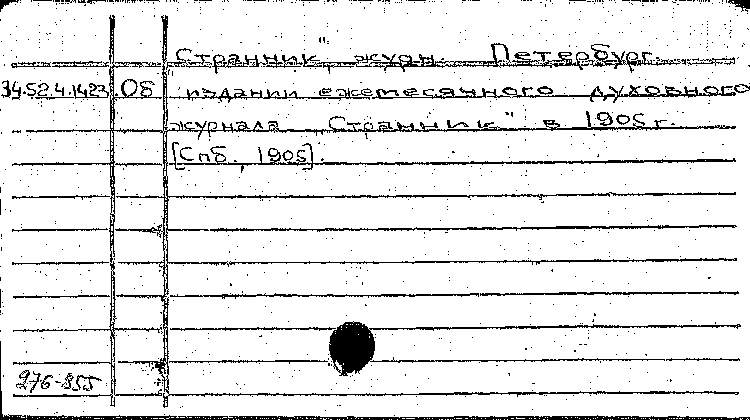 Странник", журн. Петербург.
34.52.4.1423 Об издании ежемесячного духовного
журнала „Странник" в 1905 г.
[Спб., 1905].
276-855